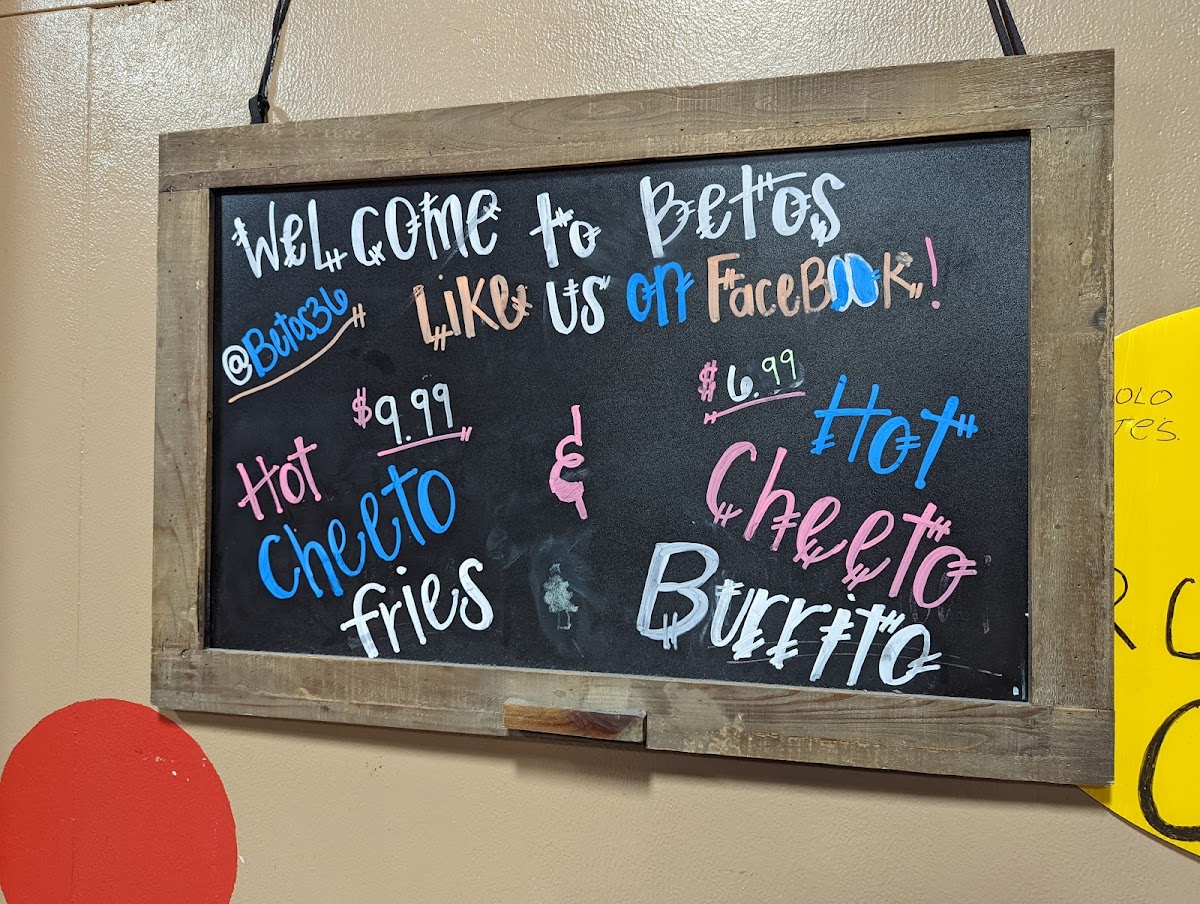 WeLcome to Betos
@Betos36 Like us on FaceBook!
$9.99
Hot
cheeto
fries
&
$6.99
Hot
Cheeto
Burrito
OLO